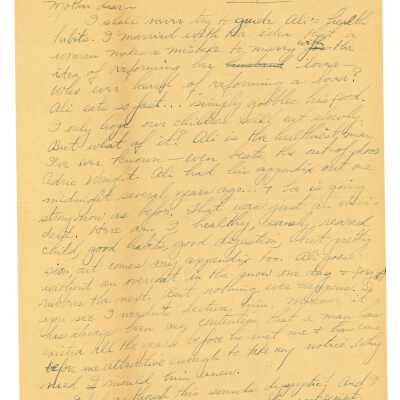 Mother dear—
I shall never try to guide Ali's health
habits. I married with the idea that a
woman makes a mistake to marry with the
idea of reforming her husband lover—
Who ever heard of reforming a lover?
Ali eats so fast... Simply gobbles his food.
I only hope our children will eat slowly.
But what of it? Ali is the healthiest man
I've ever known— even beats his out of doors
Ali had his appendix out one
midnight several years ago. & he is going
strong now as before. That was just an inci-
dent. Here am I, healthy, reared
child, good habits, good digestion,
out comes my appendix too. Ali goes
without an overcoat in the snow one day &
rubbers the next. But nothing ever happens. So
you see I needn't lecture him. Moreover it
has always been my contention that a man
the world before he met me &
before me attractive enough to take my notice. Why
need I mould him anew.
I though this sounds &